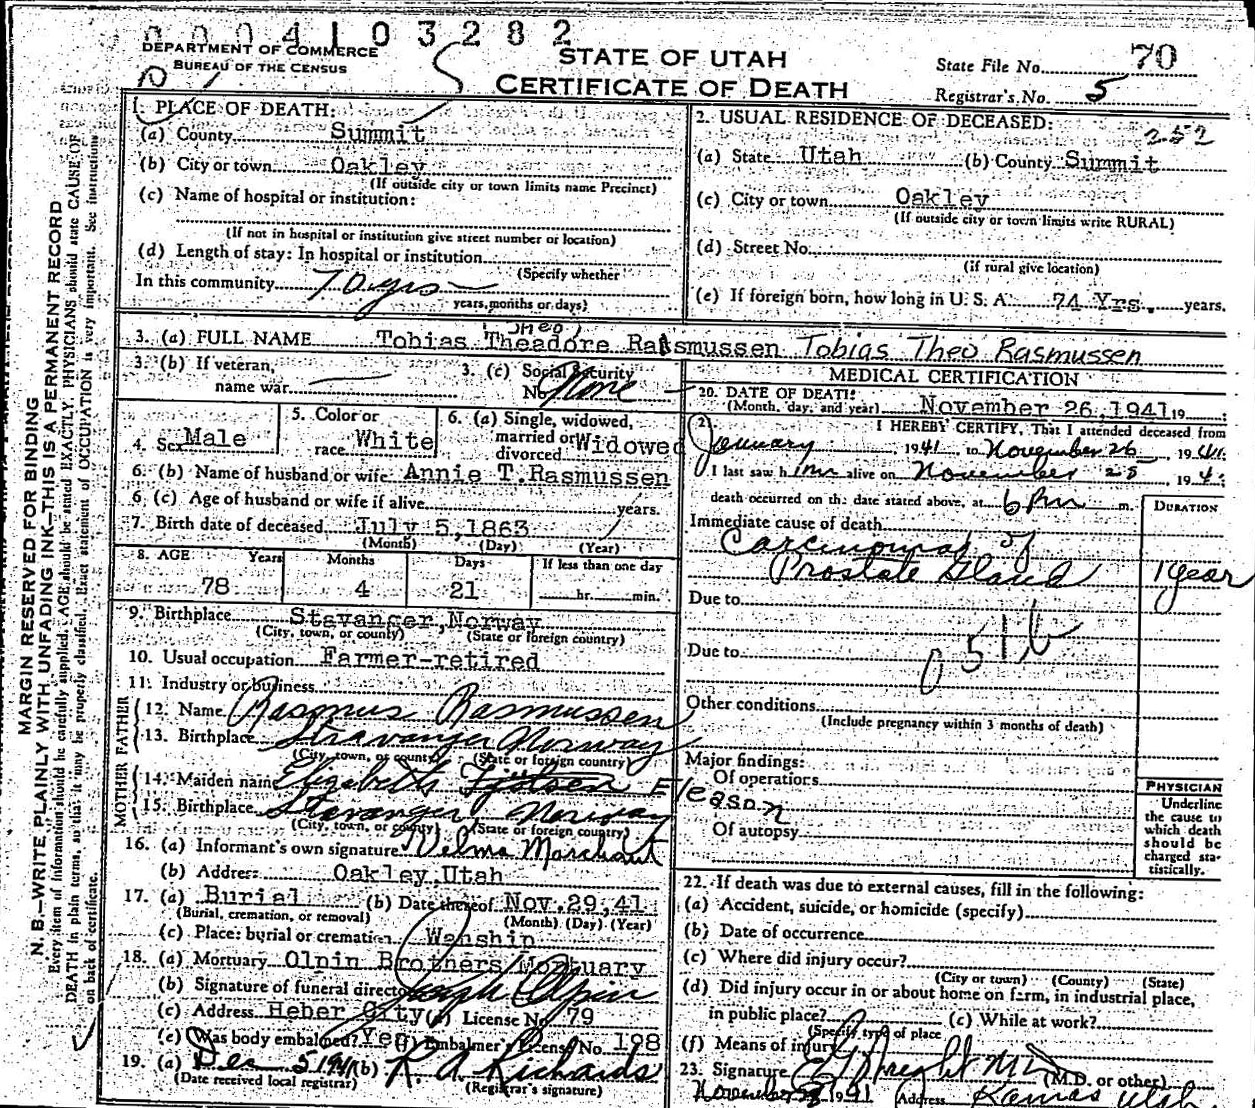 0004103282
DEPARTMENT OF COMMERCE
BUREAU OF THE CENSUS
STATE OF UTAH
CERTIFICATE OF DEATH
State File No. 70
Registrar's No. 5
1. PLACE OF DEATH:
(a) County Summit
(b) City or town Oakley
(If outside city or town limits name Precinct)
(c) Name of hospital or institution:
(If not in hospital or institution give street number or location)
(d) Length of stay: In hospital or institution
(Specify whether
In this community 70 yrs
years, months or days)
2. USUAL RESIDENCE OF DECEASED:
252
(a) State Utah (b) County Summit
(c) City or town Oakley
(If outside city or town limits write RURAL)
(d) Street No.
(if rural give location)
(e) If foreign born, how long in U. S. A. 74 Yrs. years.
3. (a) FULL NAME Tobias Theadore Rasmussen Tobias Theo Rasmussen
(Theo)
3. (b) If veteran, name war
3. (c) Social Security No. None
4. Sex Male
5. Color or race White
6. (a) Single, widowed, married or divorced Widowed
6. (b) Name of husband or wife Annie T. Rasmussen
6 (c) Age of husband or wife if alive years.
7. Birth date of deceased July 5, 1863
(Month) (Day) (Year)
8. AGE Years Months Days If less than one day
78 4 21 hr. min.
9. Birthplace Stavanger, Norway
(City, town, or county) (State or foreign country)
10. Usual occupation Farmer-retired
11. Industry or business
FATHER
12. Name Rasmus Rasmussen
13. Birthplace Stravanger Norway
(City, town, or county) (State or foreign country)
MOTHER
14. Maiden name Elizabeth Eleason
15. Birthplace Stavanger Norway
(City, town, or county) (State or foreign country)
16. (a) Informant's own signature Velma Marchant
(b) Address Oakley, Utah
17. (a) Burial (b) Date thereof Nov. 29, 41
(Burial, cremation, or removal) (Month) (Day) (Year)
(c) Place: burial or cremation Wanship
18. (a) Mortuary Olpin Brothers Mortuary
(b) Signature of funeral director Joseph Olpin
(c) Address Heber City (d) License No. 79
(e) Was body embalmed? Yes (f) Embalmer's License No. 198
19. (a) Dec 5 1941 (b) R. A. Richards
(Date received local registrar) (Registrar's signature)
MEDICAL CERTIFICATION
20. DATE OF DEATH:
(Month, day, and year) November 26, 1941 19
21. I HEREBY CERTIFY, That I attended deceased from
January 1941, to November 26, 1941
I last saw him alive on November 25, 194
death occurred on the date stated above, at 6 Pm m.
DURATION
Immediate cause of death
Carcinoma of
Prostate Gland 1 year
Due to
Due to
051b
Other conditions
(Include pregnancy within 3 months of death)
Major findings:
Of operations
Of autopsy
PHYSICIAN
Underline
the cause to
which death
should be
charged sta-
tistically.
22. If death was due to external causes, fill in the following:
(a) Accident, suicide, or homicide (specify)
(b) Date of occurrence
(c) Where did injury occur?
(City or town) (County) (State)
(d) Did injury occur in or about home on farm, in industrial place,
in public place? (e) While at work?
(Specify type of place
(f) Means of injury
23. Signature M.D. (M.D. or other)
November 1941 Address Kamas Utah
MARGIN RESERVED FOR BINDING
N. B.—WRITE PLAINLY WITH UNFADING INK—THIS IS A PERMANENT RECORD
Every item of information should be carefully supplied. AGE should be stated EXACTLY. PHYSICIANS should state CAUSE OF
DEATH in plain terms, so that it may be properly classified. Exact statement of OCCUPATION is very important. See instructions
on back of certificate.